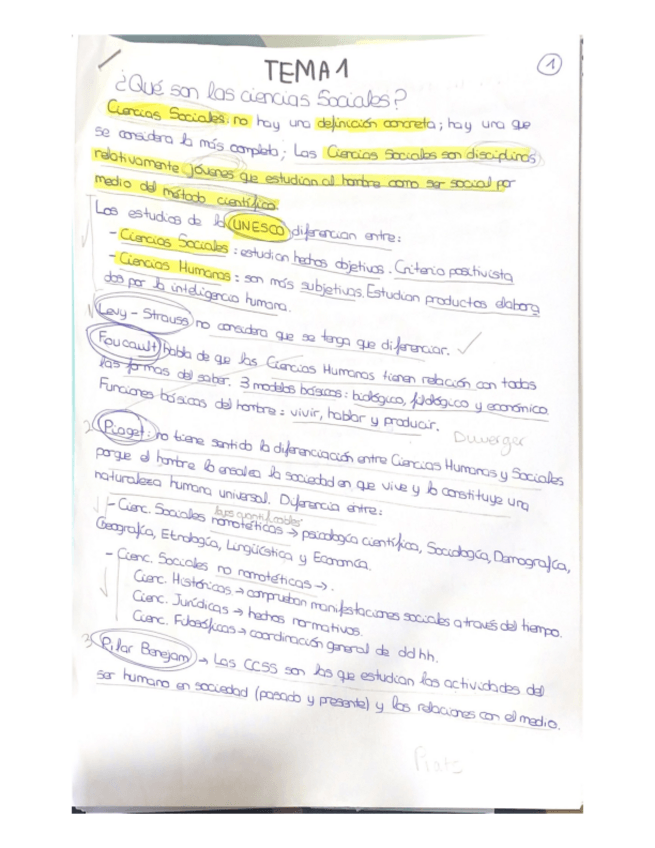 TEMA 1
1
¿Qué son las ciencias Sociales?
Ciencias Sociales: no hay una definición concreta; hay una que
se considera la más completa; Las Ciencias Sociales son disciplinas
relativamente jóvenes que estudian al hombre como ser social por
medio del método científico.
Los estudios de la UNESCO diferencian entre:
- Ciencias Sociales: estudian hechos objetivos. Criterio positivista
- Ciencias Humanas: son más subjetivas. Estudian productos elabora
dos por la inteligencia humana.
Levy-Strauss no considera que se tenga que diferenciar.
Foucault habla de que las Ciencias Humanas tienen relación con todas
las formas del saber. 3 modelos básicos: biológico, filológico y económico.
Funciones básicas del hombre: vivir, hablar y producir.
Duverger
2 Piaget: no tiene sentido la diferenciación entre Ciencias Humanas y Sociales
porque el hombre lo ensalza la sociedad en que vive y lo constituye una
naturaleza humana universal. Diferencia entre:
leyes cuantificables
- Cienc. Sociales nomotéticas → psicología científica, Sociología, Demografía,
Geografía, Etnología, Lingüística y Economía.
- Cienc. Sociales no nomotéticas →.
Cienc. Históricas → comprueban manifestaciones sociales a través del tiempo.
Cienc. Jurídicas → hechos normativos.
Cienc. Filosóficas → coordinación general de ddhh.
3 Pilar Benejam → Las CCSS son las que estudian las actividades del
ser humano en sociedad (pasado y presente) y las relaciones con el medio.